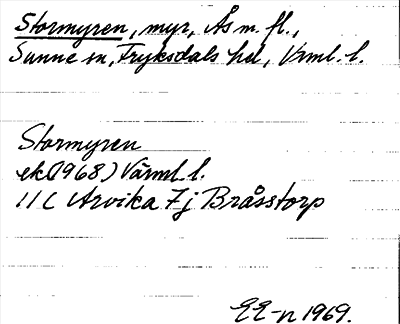 Stormyren, myr, Ås m. fl.,
Sunne sn, Fryksdals hd, Vrml. l.
Stormyren
ek(1968) Värml. l.
11C Arvika 7j Bråsstorp
EE-n 1969.